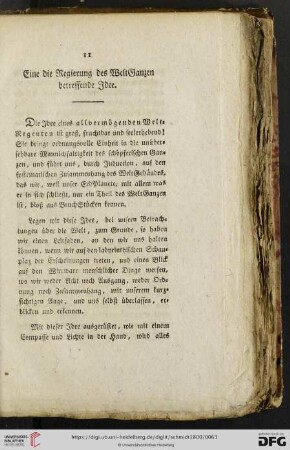 11
Eine die Regierung des WeltGanzen
betreffende Idee.
Die Idee eines allvermögenden Welt-
Regenten ist groß, fruchtbar und seelerhebend!
Sie bringt ordnungsvolle Einheit in die unüber-
sehbare Mannichfaltigkeit des schöpferischen Gan-
zen, und führt uns, durch Induction, auf den
systematischen Zusammenhang des WeltGebäudes,
das wir, weil unser ErdPlanete, mit allem was
er in sich schließt, nur ein Theil des WeltGanzen
ist, bloß aus BruchStücken kennen.
Legen wir diese Idee, bei unsern Betrach-
tungen über die Welt, zum Grunde, so haben
wir einen Leitfaden, an den wir uns halten
können, wenn wir auf den labyrintischen Schau-
plaz der Erscheinungen treten, und einen Blick
auf den Wirrwarr menschlicher Dinge werfen,
wo wir weder Licht noch Ausgang, weder Ord-
nung noch Zusammenhang, mit unserm kurz-
sichtigen Auge, und uns selbst überlassen, er-
blicken und erkennen.
Mit dieser Idee ausgerüstet, wie mit einem
Compasse und Lichte in der Hand, wird alles
UNIVERSITÄTS-
BIBLIOTHEK
HEIDELBERG
https://digi.ub.uni-heidelberg.de/diglit/schmidt1800/0003
DFG